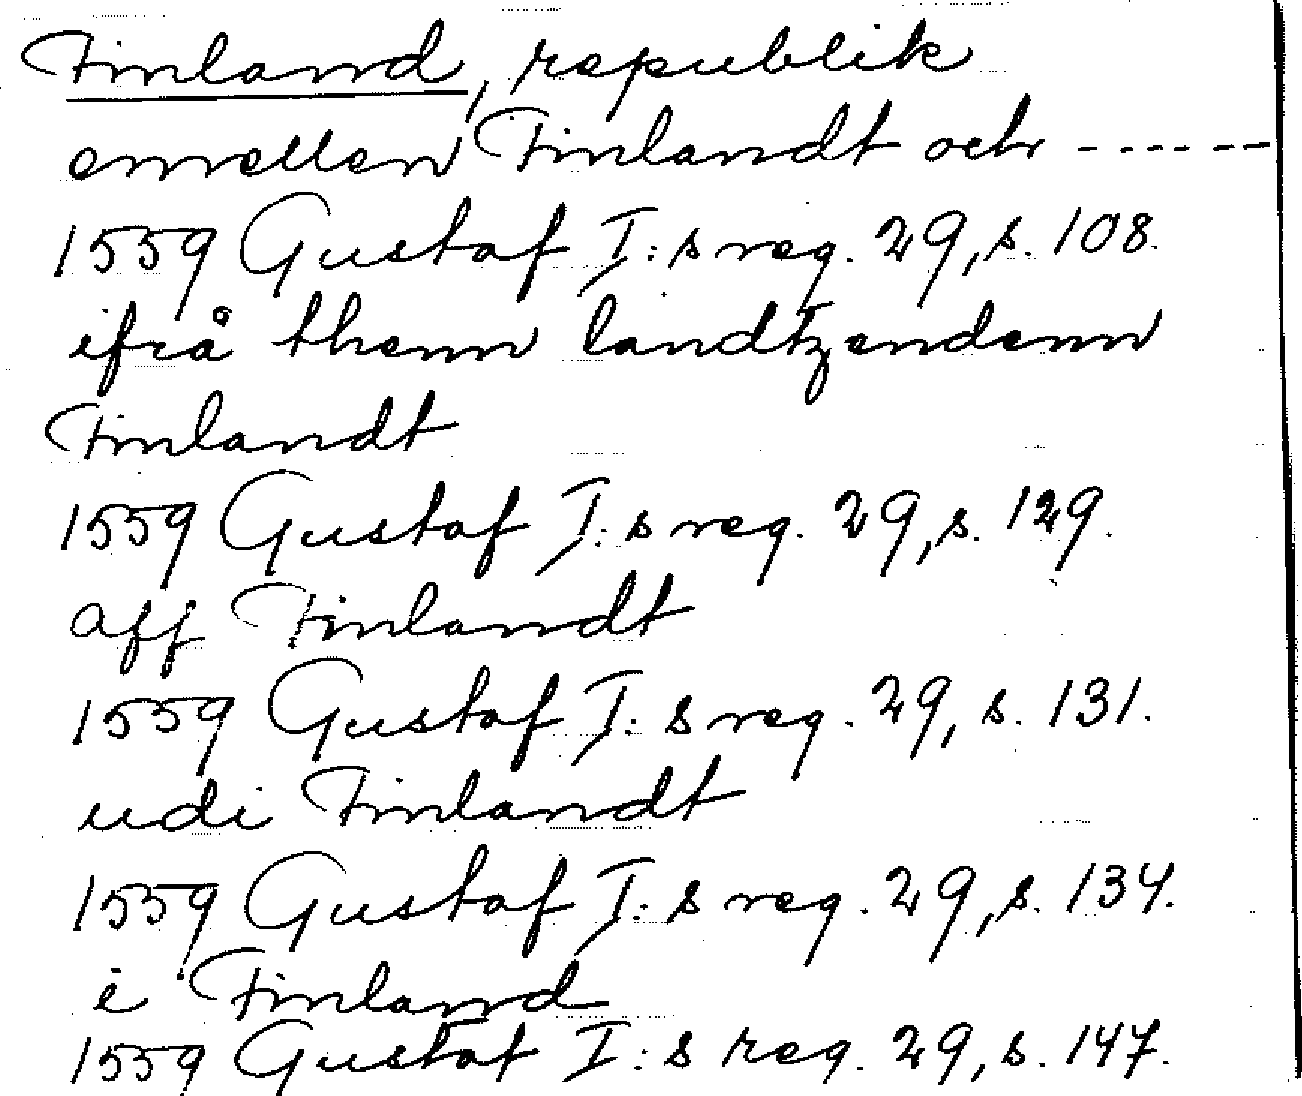 Finland, republik
emellen Finlandt och ------
1559 Gustaf I:s reg. 29, s. 108.
ifrå thenn landtzendenn
Finlandt
1559 Gustaf I:s reg. 29, s. 129.
aff Finlandt
1559 Gustaf I:s reg. 29, s. 131.
udi Finlandt
1559 Gustaf I:s reg. 29, s. 134.
i Finland
1559 Gustaf I:s reg. 29, s. 147.